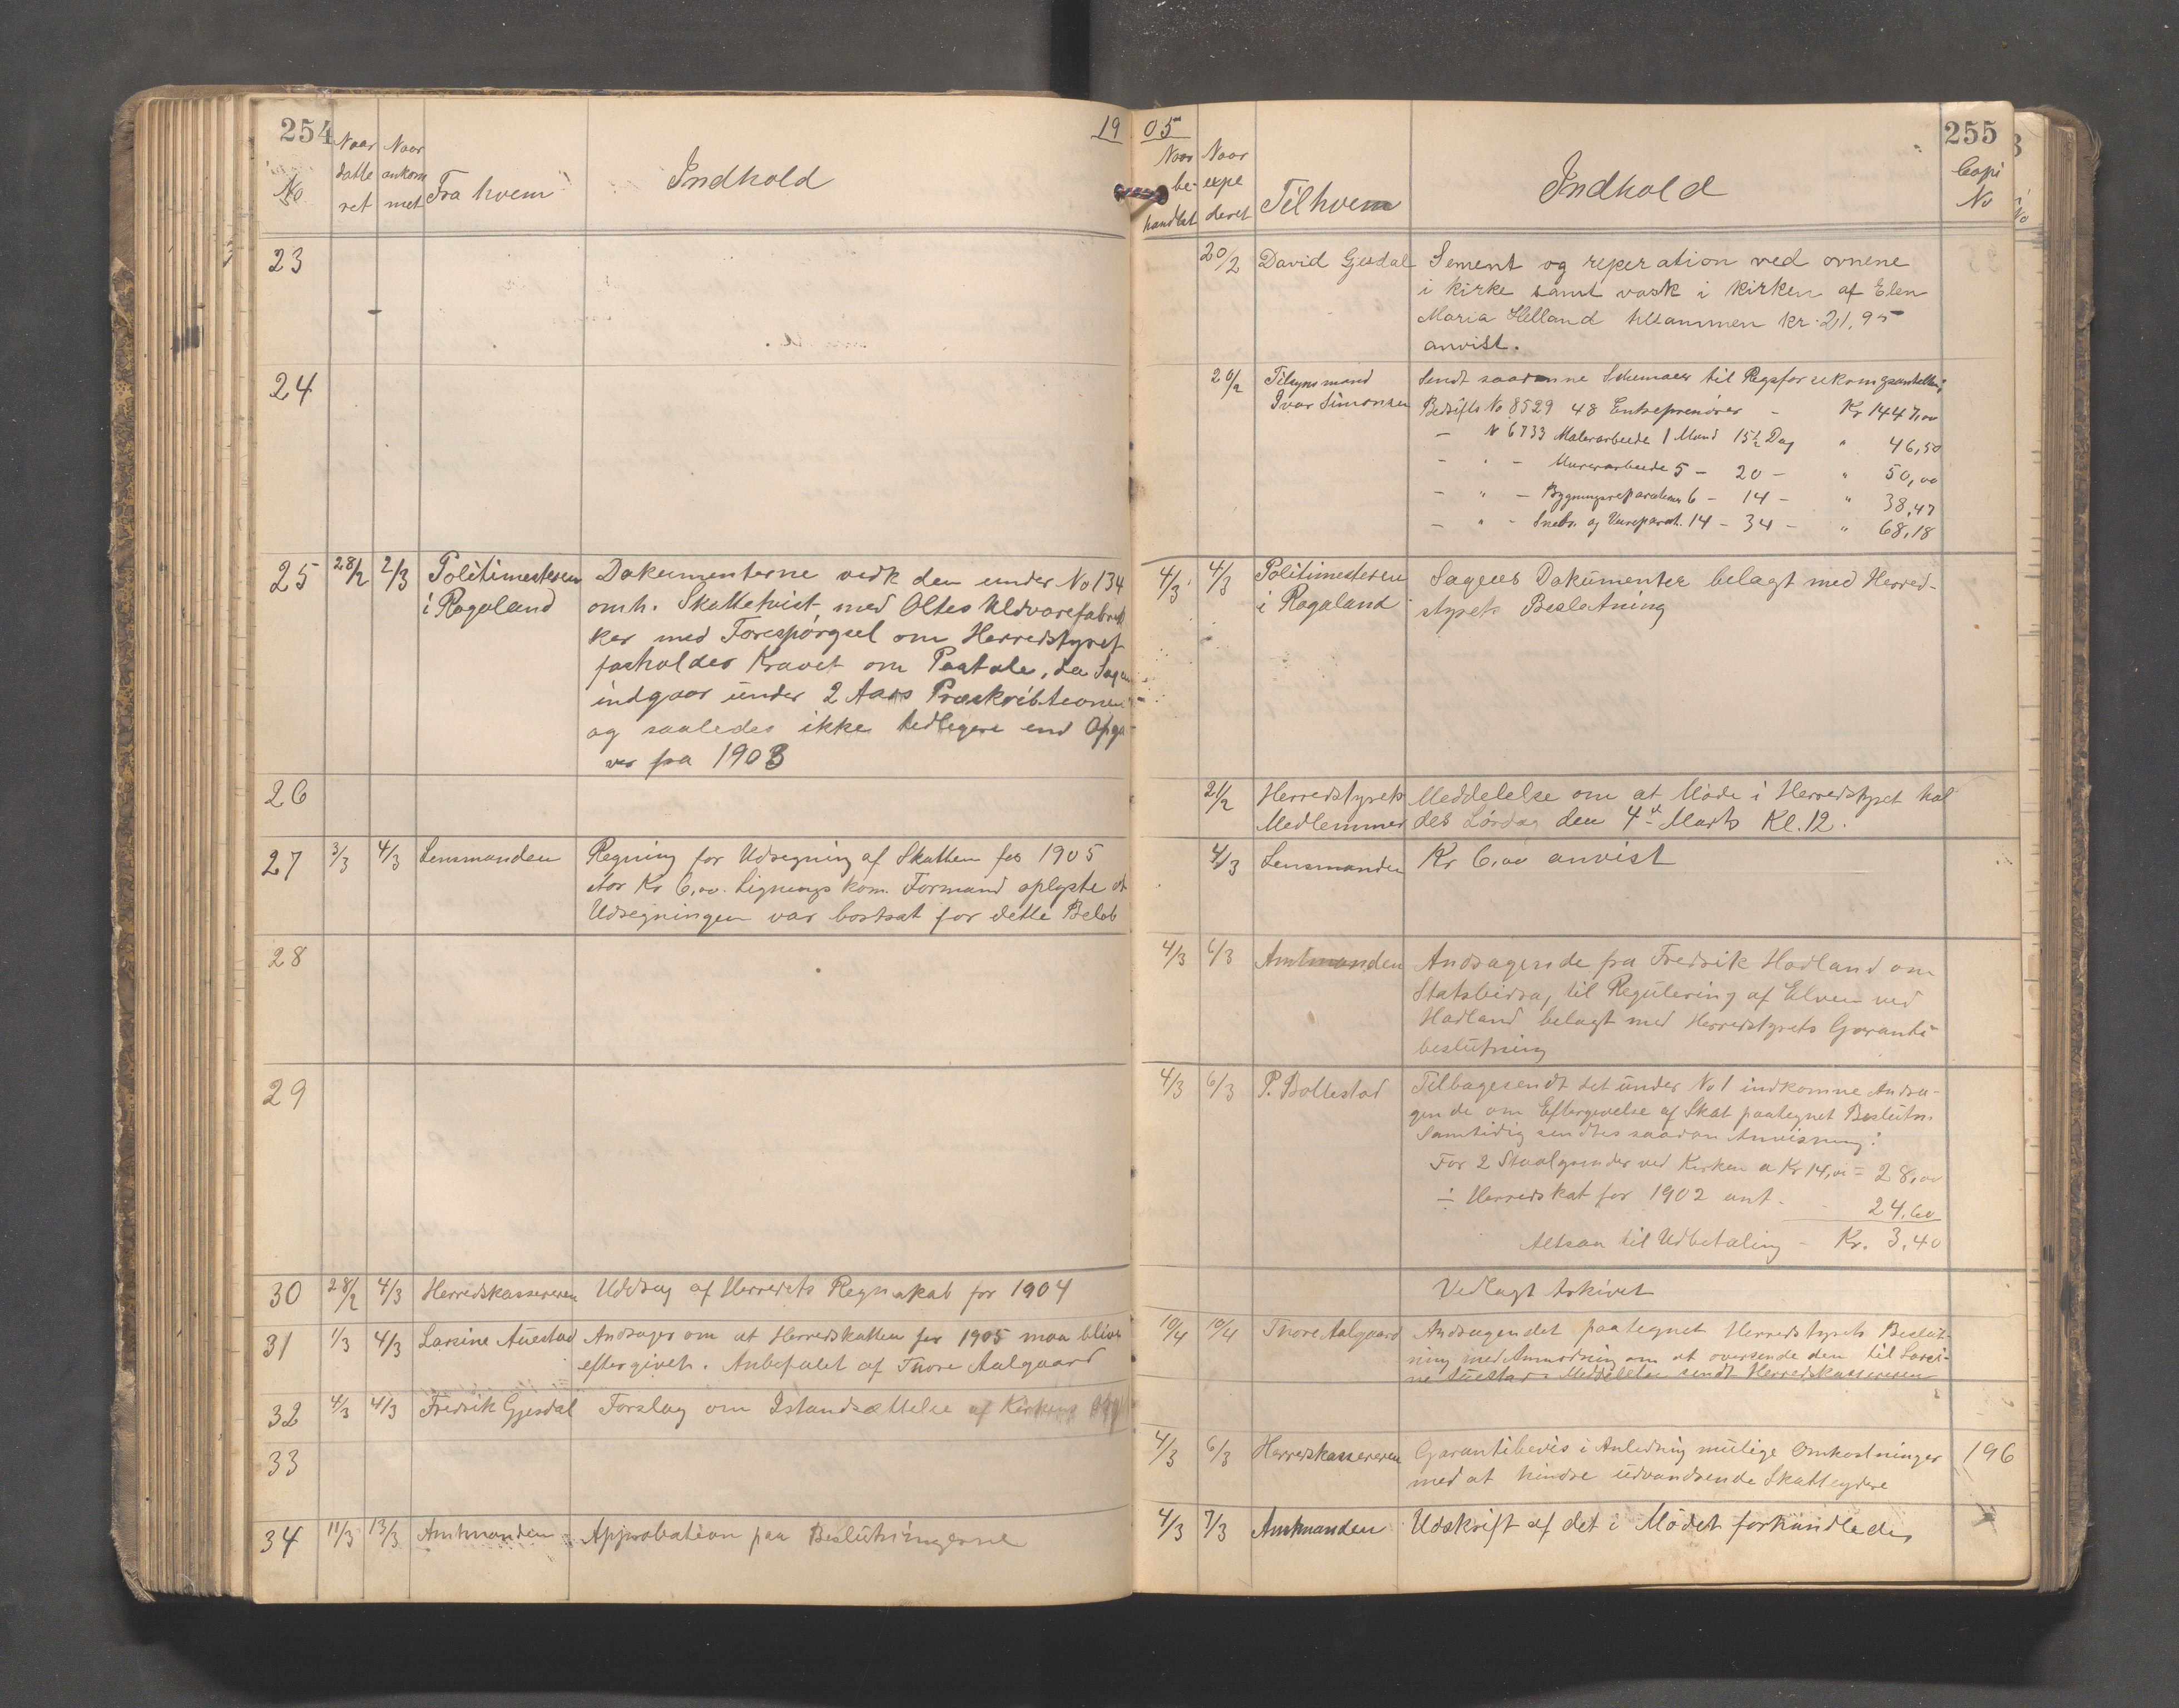 254
1905
255
No
Naar datteret
Naar ankommet
Fra hvem
Indhold
Naar behandlet
Naar expederet
Til hvem
Indhold
Copi No
23
20/2 David Gjesdal Sement og reperation ved ovnene
i kirke samt vask i kirken af Elen
Maria Helland tilsammen kr. 21,95
anvist.
24
20/2 Tilsynsmand Sendt saadanne Schemaer til
Ivar Simonsen Bedrifts No 8529 48 Entreprenører - Kr 1447,00
- No 6733 Malerarbeide 1 Mand 15½ Dag " 46,50
- " - Murerarbeide 5 - 20 - " 50,00
- " - Bygningsreparation 6 - 14 - " 38,47
- " - Snebr. og Veireparat. 14 - 34 - " 68,18
25 28/2 2/3 Politimesteren Dokumenterne vedk den under No 134
i Rogaland omh. Skattetvist med Oltes Uldvarefabrik
ker med Forespørgsel om Herredstyret
fastholder Kravet om Paatale, da Sagen
indgaar under 2 Aars Præskribtionen
og saaledes ikke tedligere end Opga-
ver fra 1903
4/3 4/3 Politimesteren Sagens Dokumenter belagt med Herred-
i Rogaland styrets Beslutning
26
21/2 Herredstyrets Meddelelse om at Møde i Herredstyret hol
Medlemmer des Lørdag den 4de Marts Kl. 12.
27 3/3 4/3 Lensmanden Regning for Udregning af Skatten for 1905
stor Kr 6,00. Lignings kom. Formand oplyste at
Udregningen var bortsat for dette Beløb
4/3 Lensmanden Kr 6,00 anvist
28
4/3 6/3 Amtmanden Andragende fra Fredrik Hadland om
Statsbidrag til Regulering af Elven ved
Hadland belagt med Herredstyrets Garanti-
beslutning
29
4/3 6/3 P. Bollestad Tilbagesendt det under No 1 indkomne Andra-
gende om Eftergivelse af Skat paategnet Beslutn.
Samtidig sendtes saadan Anvisning:
For 2 Staalgrinder ved Kirken a Kr 14,00 = 28,00
÷ Herredskat for 1902 ant - 24,60
Altsaa til Udbetaling - Kr. 3,40
30 28/2 4/3 Herredskassereren Uddrag af Herredets Regnskab for 1904
Vedlagt Arkivet
31 1/3 4/3 Larsine Auestad Andrager om at Herredskatten for 1905 maa blive
eftergivet. Anbefalet af Thore Aalgaard
10/4 10/4 Thore Aalgaard Andragendet paategnet Herredstyrets Beslut-
ning med Anmodning om at oversende den til Larsi-
ne Auestad. Meddelelse sendt Herredskassereren
32 4/3 4/3 Fredrik Gjesdal Forslag om Istandsættelse af Kirkens
33
4/3 6/3 Herredskassereren Garantibevis i Anledning mulige Omkostninger 196
med at hindre udvandrende Skatteydere
34 11/3 13/3 Amtmanden Approbation paa Beslutningerne
4/3 7/3 Amtmanden Udskrift af det i Mødet forhandlede